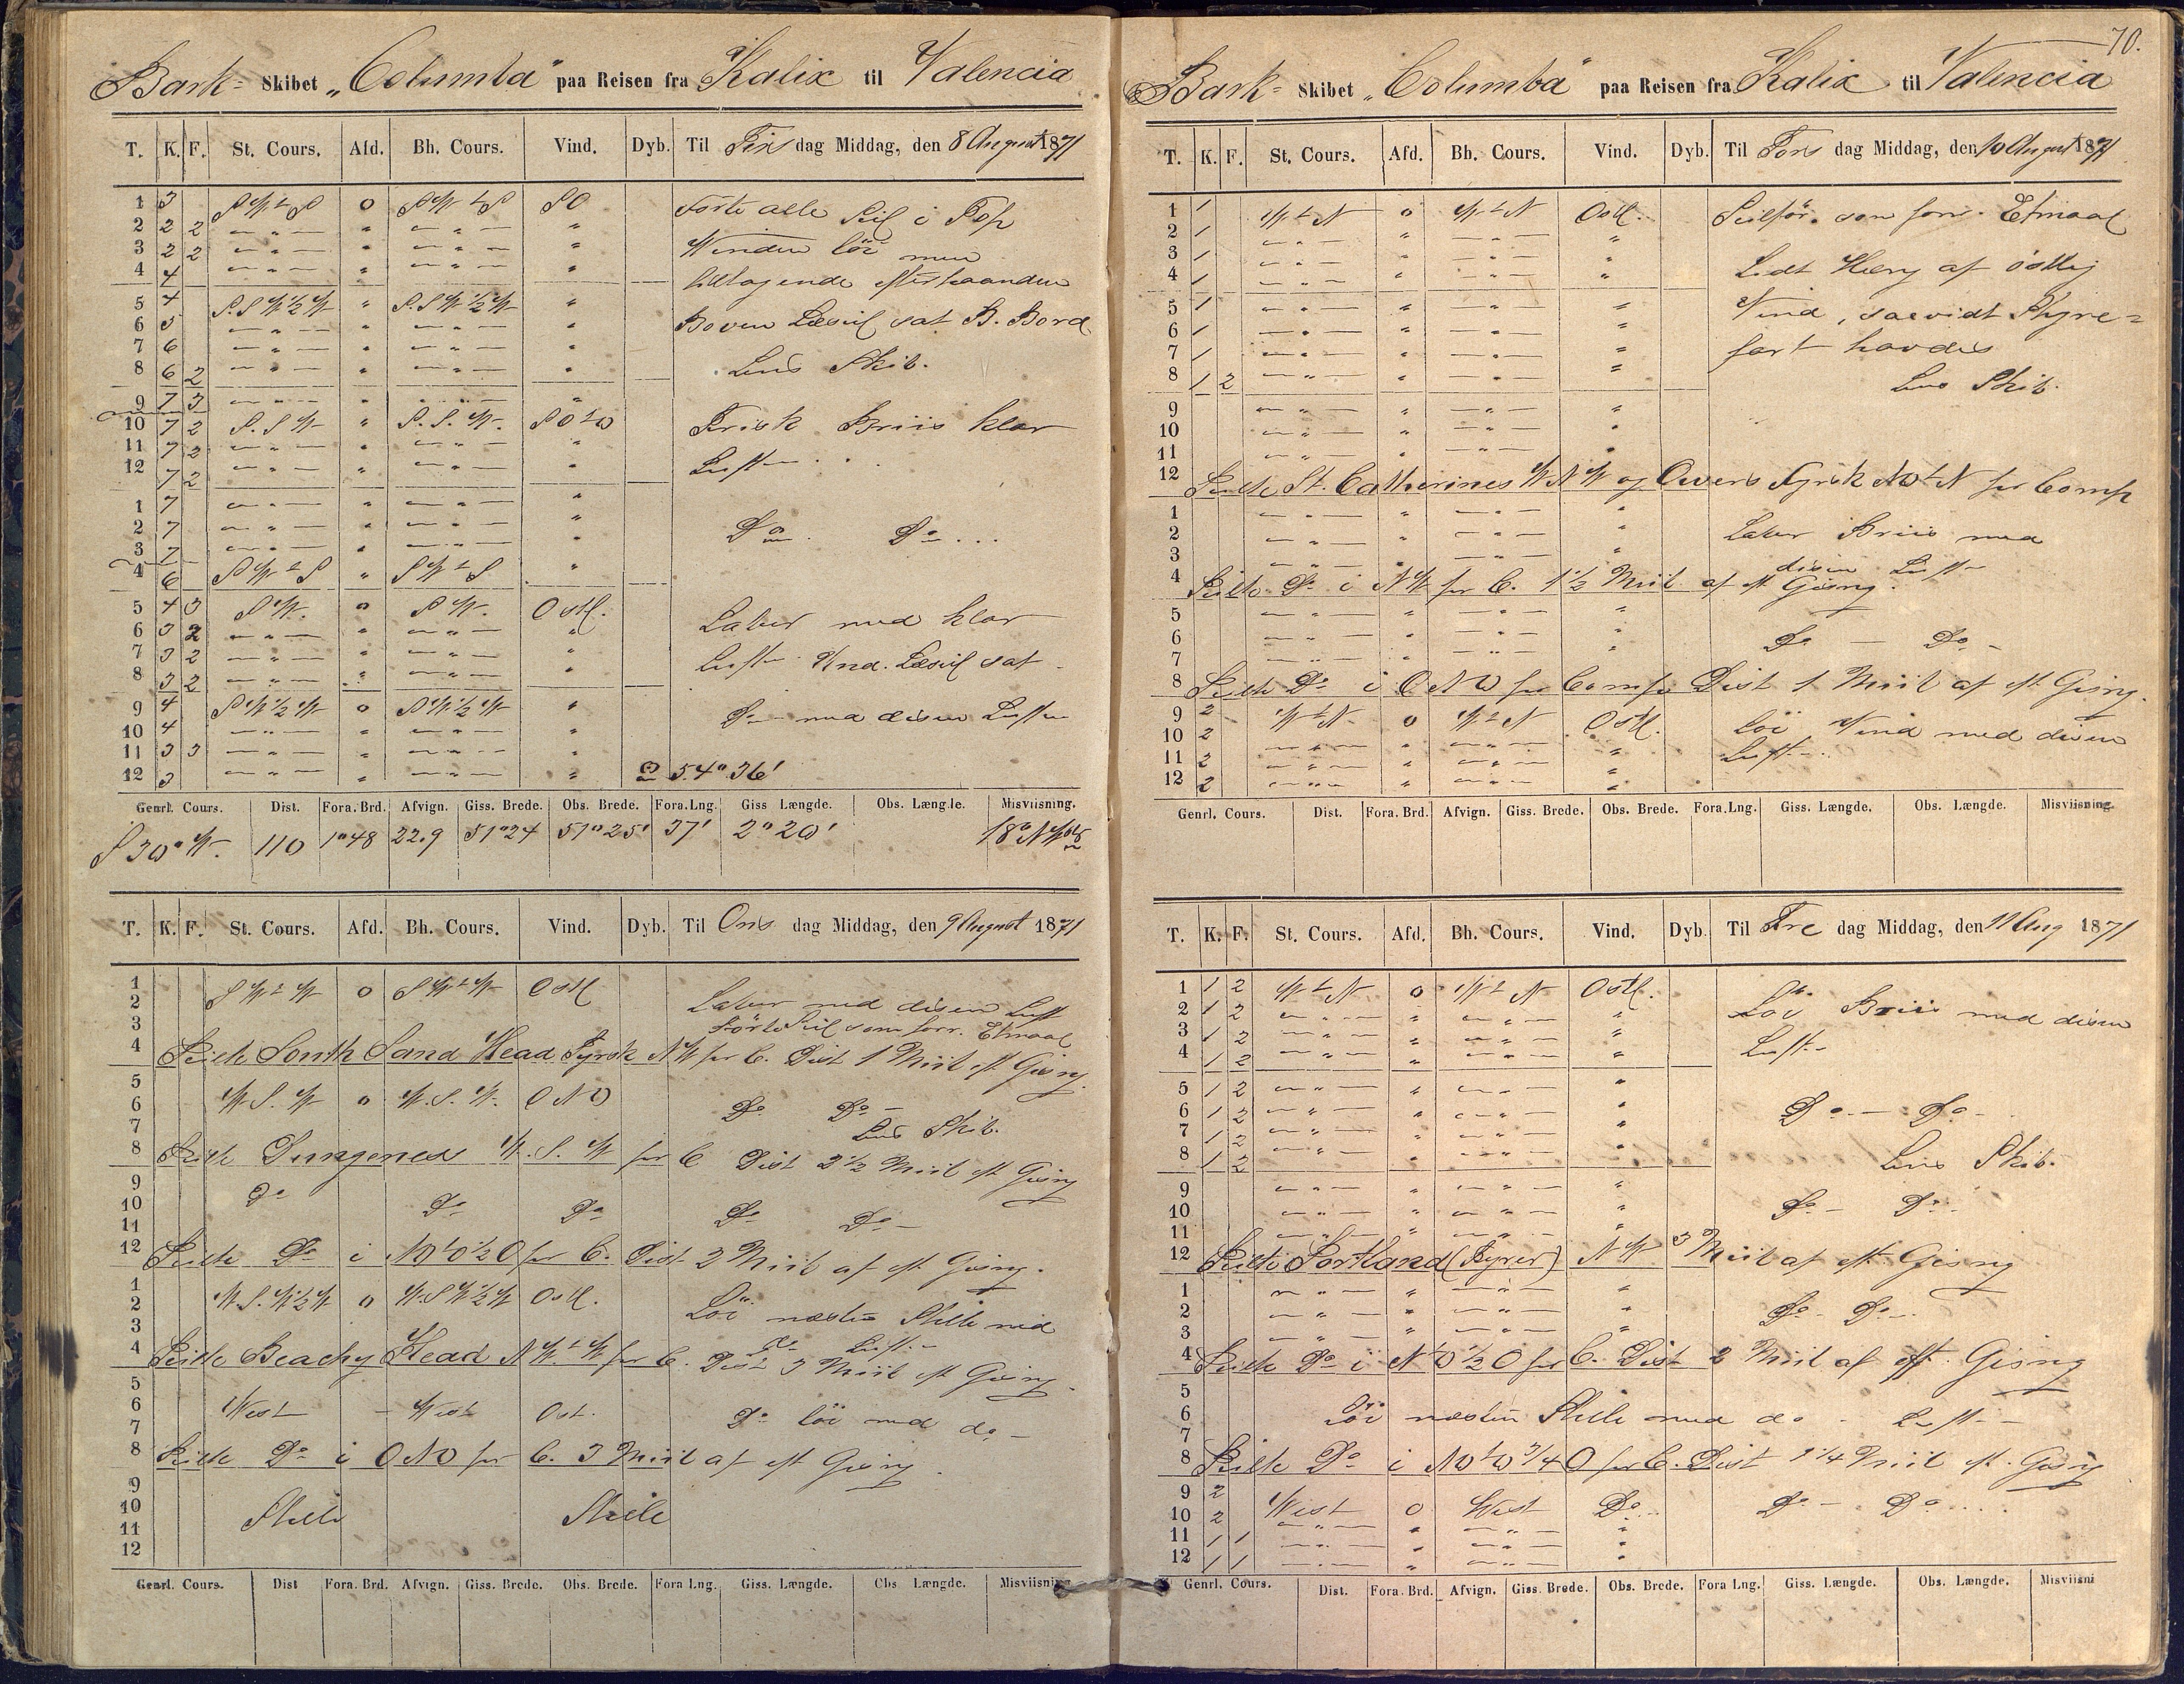 Bark= Skibet „Columba" paa Reisen fra Kalix til Valencia
T. K. F. St. Cours. Afd. Bh. Cours. Vind. Dyb. Til Tirs dag Middag, den 8 August 1871
1 3 SWtS 0 SWtS SO Förte alle Seil i Top
2 2 2 — „ — „ — „ — „ Vinden löi men
3 2 2 — „ — „ — „ — „
4 4 — „ — „ — „ — „ tiltagende efterhaanden
5 4 S.SW½W „ S.SW½W „ Boven Læseil sat B. Bord
6 5 — „ — „ — „ — „
7 6 — „ — „ — „ — „
8 6 2 — „ — „ — „ — „ Lens Skib.
9 7 3 — „ — „ — „ — „
10 7 2 S.SW „ S.S.W. SOtO Frisk Briis klar
11 7 2 — „ — „ — „ — „
12 7 2 — „ — „ — „ — „ Luft
1 7 — „ — „ — „ — „
2 7 — „ — „ — „ — „ Do Do
3 7 — „ — „ — „ — „
4 6 SWtS „ SWtS „
5 4 3 SW. 0 SW. Ostl. Laber med klar
6 3 2 — „ — „ — „ — „
7 3 2 — „ — „ — „ — „ Luft Und. Læseil sat
8 3 2 — „ — „ — „ — „
9 4 SW½W 0 SW½W „ Do med disen Luft
10 4 — „ — „ — „ — „
11 3 3 — „ — „ — „ — „
12 3 — „ — „ — „ — „ 54° 36'
Genrl. Cours. Dist. Fora. Brd. Afvign. Giss. Brede. Obs. Brede. Fora. Lng. Giss Længde. Obs. Længde. Misviisning.
S 30° W. 110 1°48 22.9 51°24 51°25' 37' 2°20' 18° NW
T. K. F. St. Cours. Afd. Bh. Cours. Vind. Dyb. Til Ons dag Middag, den 9 August 1871
1
2 SWtW 0 SWtW Ostl Laber med disen Luft
3 Förte Seil som forr. Etmaal
4 Peilte South Sand Head Fyrsk NW pr C. Dist 1 Miil eft Gisng.
5
6 W.S.W 0 W.S.W. ONO Do Do
7 Lens Skib.
8 Peilte Dungenes W.S.W pr C Dist 2½ Miil eft Gisng
9
10 Do Do Do Do Do
11
12 Peilte Do i NOtO½O pr C. Dist 2 Miil af eft Gisng.
1
2 W.S.W½W 0 W.SW½W Ostl. Löi næsten Stille med
3 do Luft
4 Peilte Beachy Head NWtW pr C. Dist 3 Miil eft Gisng.
5
6 West — West Ost. Do löi med do
7
8 Peilte Do i ONO pr C. 3 Miil af eft Gisng.
9
10 Stille Stille
11
12
Genrl. Cours. Dist Fora. Brd. Afvign. Giss. Brede. Obs. Brede. Fora Lng. Giss. Længde. Obs Længde. Misviisning
70.
Bark= Skibet „Columba" paa Reisen fra Kalix til Valencia
T. K. F. St. Cours. Afd. Bh. Cours. Vind. Dyb. Til Tors dag Middag, den 10 August 1871
1 1 WtN 0 WtN Ostl. Seilför. som forr. Etmaal
2 1 — „ — „ — „ — „
3 1 — „ — „ — „ — „
4 1 — „ — „ — „ — „ Lidt Kieng af östlig
5 1 — „ — „ — „ — „ Vind, saavidt Styre=
6 1 — „ — „ — „ — „
7 1 — „ — „ — „ — „ fart havdes
8 1 2 — „ — „ — „ — „ Lens Skib.
9 — „ — „ — „ — „
10 — „ — „ — „ — „
11 — „ — „ — „ — „
12 Peilte St. Catherines WNW og Owers Fyrsk NOtN pr Comp
1 — „ — „ — „ — „
2 — „ — „ — „ — „ Laber Briis med
3 — „ — „ — „ — „ disen Luft
4 Peilte Do i NW pr C. 1½ Miil af eft Gisng.
5 — „ — „ — „ — „
6 — „ — „ — „ — „ Do — Do —
7 — „ — „ — „ — „
8 Peilte Do i ONO pr Comp Dist 1 Miil af eft Gisng.
9 2 WtN 0 WtN Ostl. löi Vind med disen
10 2 — „ — „ — „ — „
11 2 — „ — „ — „ — „ Luft
12 2 — „ — „ — „ — „
Genrl. Cours. Dist. Fora. Brd. Afvign. Giss. Brede. Obs. Brede. Fora. Lng. Giss. Længde. Obs. Længde. Misviisning.
T. K. F. St. Cours. Afd. Bh. Cours. Vind. Dyb. Til Fre dag Middag, den 11 Aug 1871
1 1 2 WtN 0 WtN Ostl. Löi Briis med disen
2 1 2 — „ — „ — „ — „
3 1 2 — „ — „ — „ — „ Luft
4 1 2 — „ — „ — „ — „
5 1 2 — „ — „ — „ — „
6 1 2 — „ — „ — „ — „ Do — Do —
7 1 2 — „ — „ — „ — „
8 1 2 — „ — „ — „ — „ Lens Skib.
9 — „ — „ — „ — „
10 — „ — „ — „ — „ Do — Do
11 — „ — „ — „ — „
12 Peilte Portland (Fyrer) NW 3 Miil af eft Gisng
1 — „ — „ — „ — „
2 — „ — „ — „ — „ Do — Do —
3 — „ — „ — „ — „
4 Peilte Do i NtO½O pr C. Dist 2 Miil af eft. Gisng
5
6 Löi næsten Stille med do Luft —
7
8 Peilte Do i NOtO¾O pr C. Dist 1¼ Miil eft. Gisng
9 2
10 2 West 0 West Do Do — Do
11 1 1 — „ — „ — „ — „
12 1 1 — „ — „ — „ — „
Genrl. Cours. Dist. Fora. Brd. Afvign. Giss. Brede. Obs. Brede. Fora Lng. Giss. Længde. Obs. Længde. Misviisni